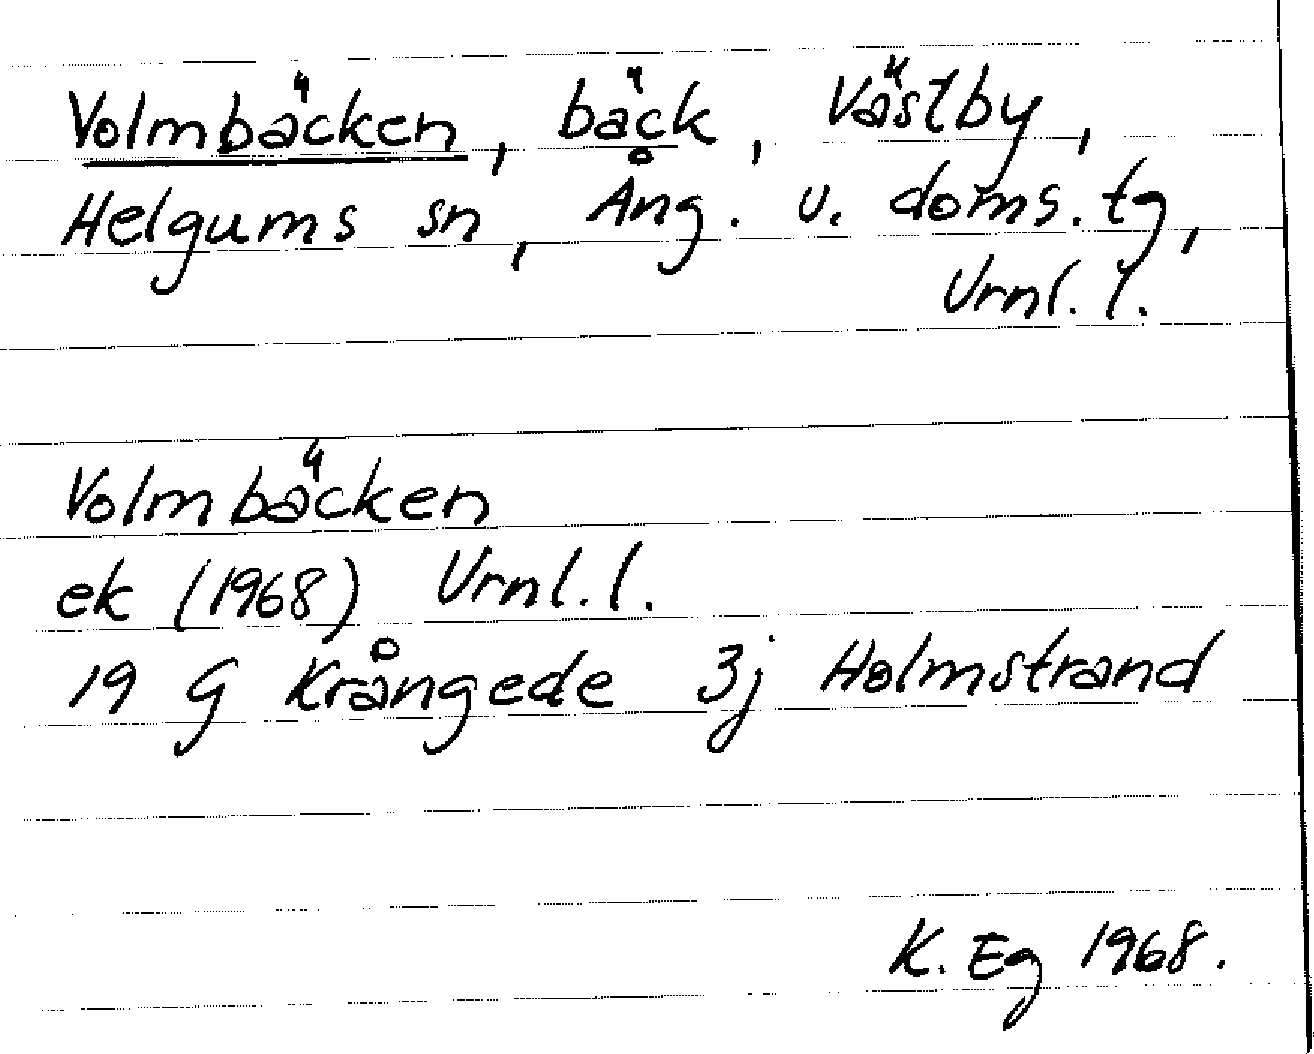 Volmbäcken, bäck, Västby,
Helgums sn, Ång. v. doms. tg,
Vrnl. l.
Volmbäcken
ek (1968) Vrnl. l.
19 G Krångede 3j Holmstrand
K. Eg 1968.